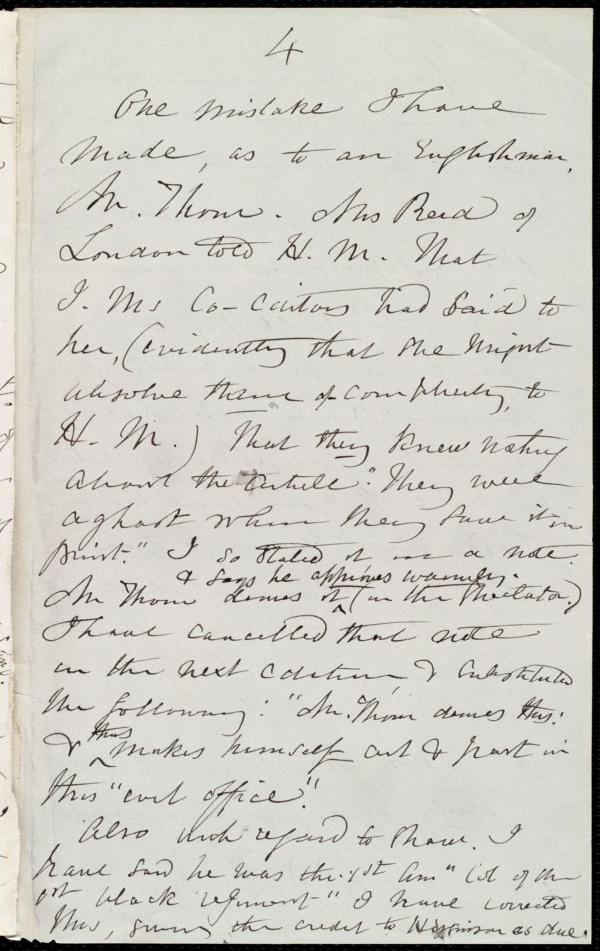 4
One mistake I have
made, as to an Englishman,
Mr. Thom. Mrs Reid of
London told H. M. that
J. M's co-editors had said to
her, (evidently that she might
absolve them of complicity, to
H. M.) that they knew nothing
about the article". They were
aghast when they saw it in
print." I so stated it in a note.
& says he approves warmly.
Mr Thom denies it (in the Spectator.)
I have cancelled that note
in the next edition, & substituted
the following: "Mr. Thom denies this:
& thus makes himself art & part in
this "evil office"."
Also with regard to Shaw. I
have said he was the 1st Am" Col of the
1st black regiment" I have corrected
this, giving the credit to Higginson as due.